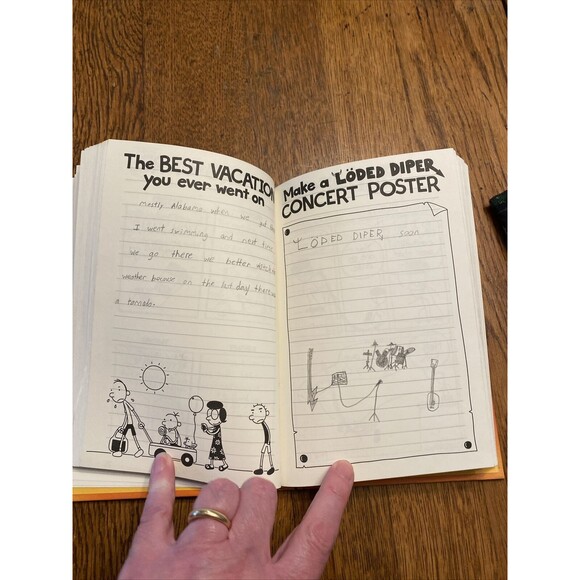 The BEST VACATION
you ever went on
mostly Alabama when we
I went swimming and next time
we go there we better
weather because on the last day there was
a tornado.
Make a LÖDED DIPER
CONCERT POSTER
LÖDED DIPER, soon